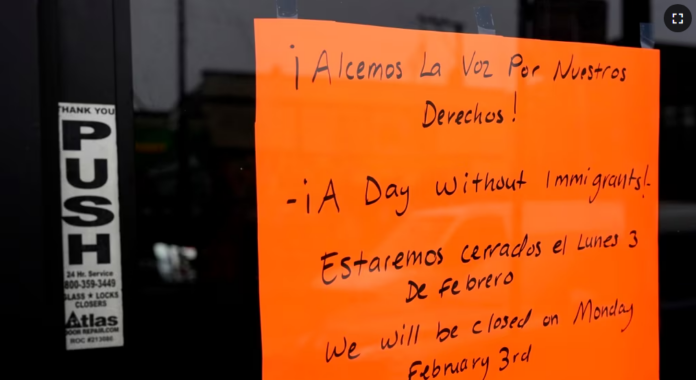 THANK YOU
PUSH
24 Hr. Service
800-359-3449
GLASS ★ LOCKS
CLOSERS
Atlas
DOOR REPAIR.COM
ROC #213680
¡Alcemos La Voz Por Nuestros
Derechos!
-¡A Day without Immigrants!-
Estaremos cerrados el Lunes 3
De Febrero
We will be closed on Monday
February 3rd